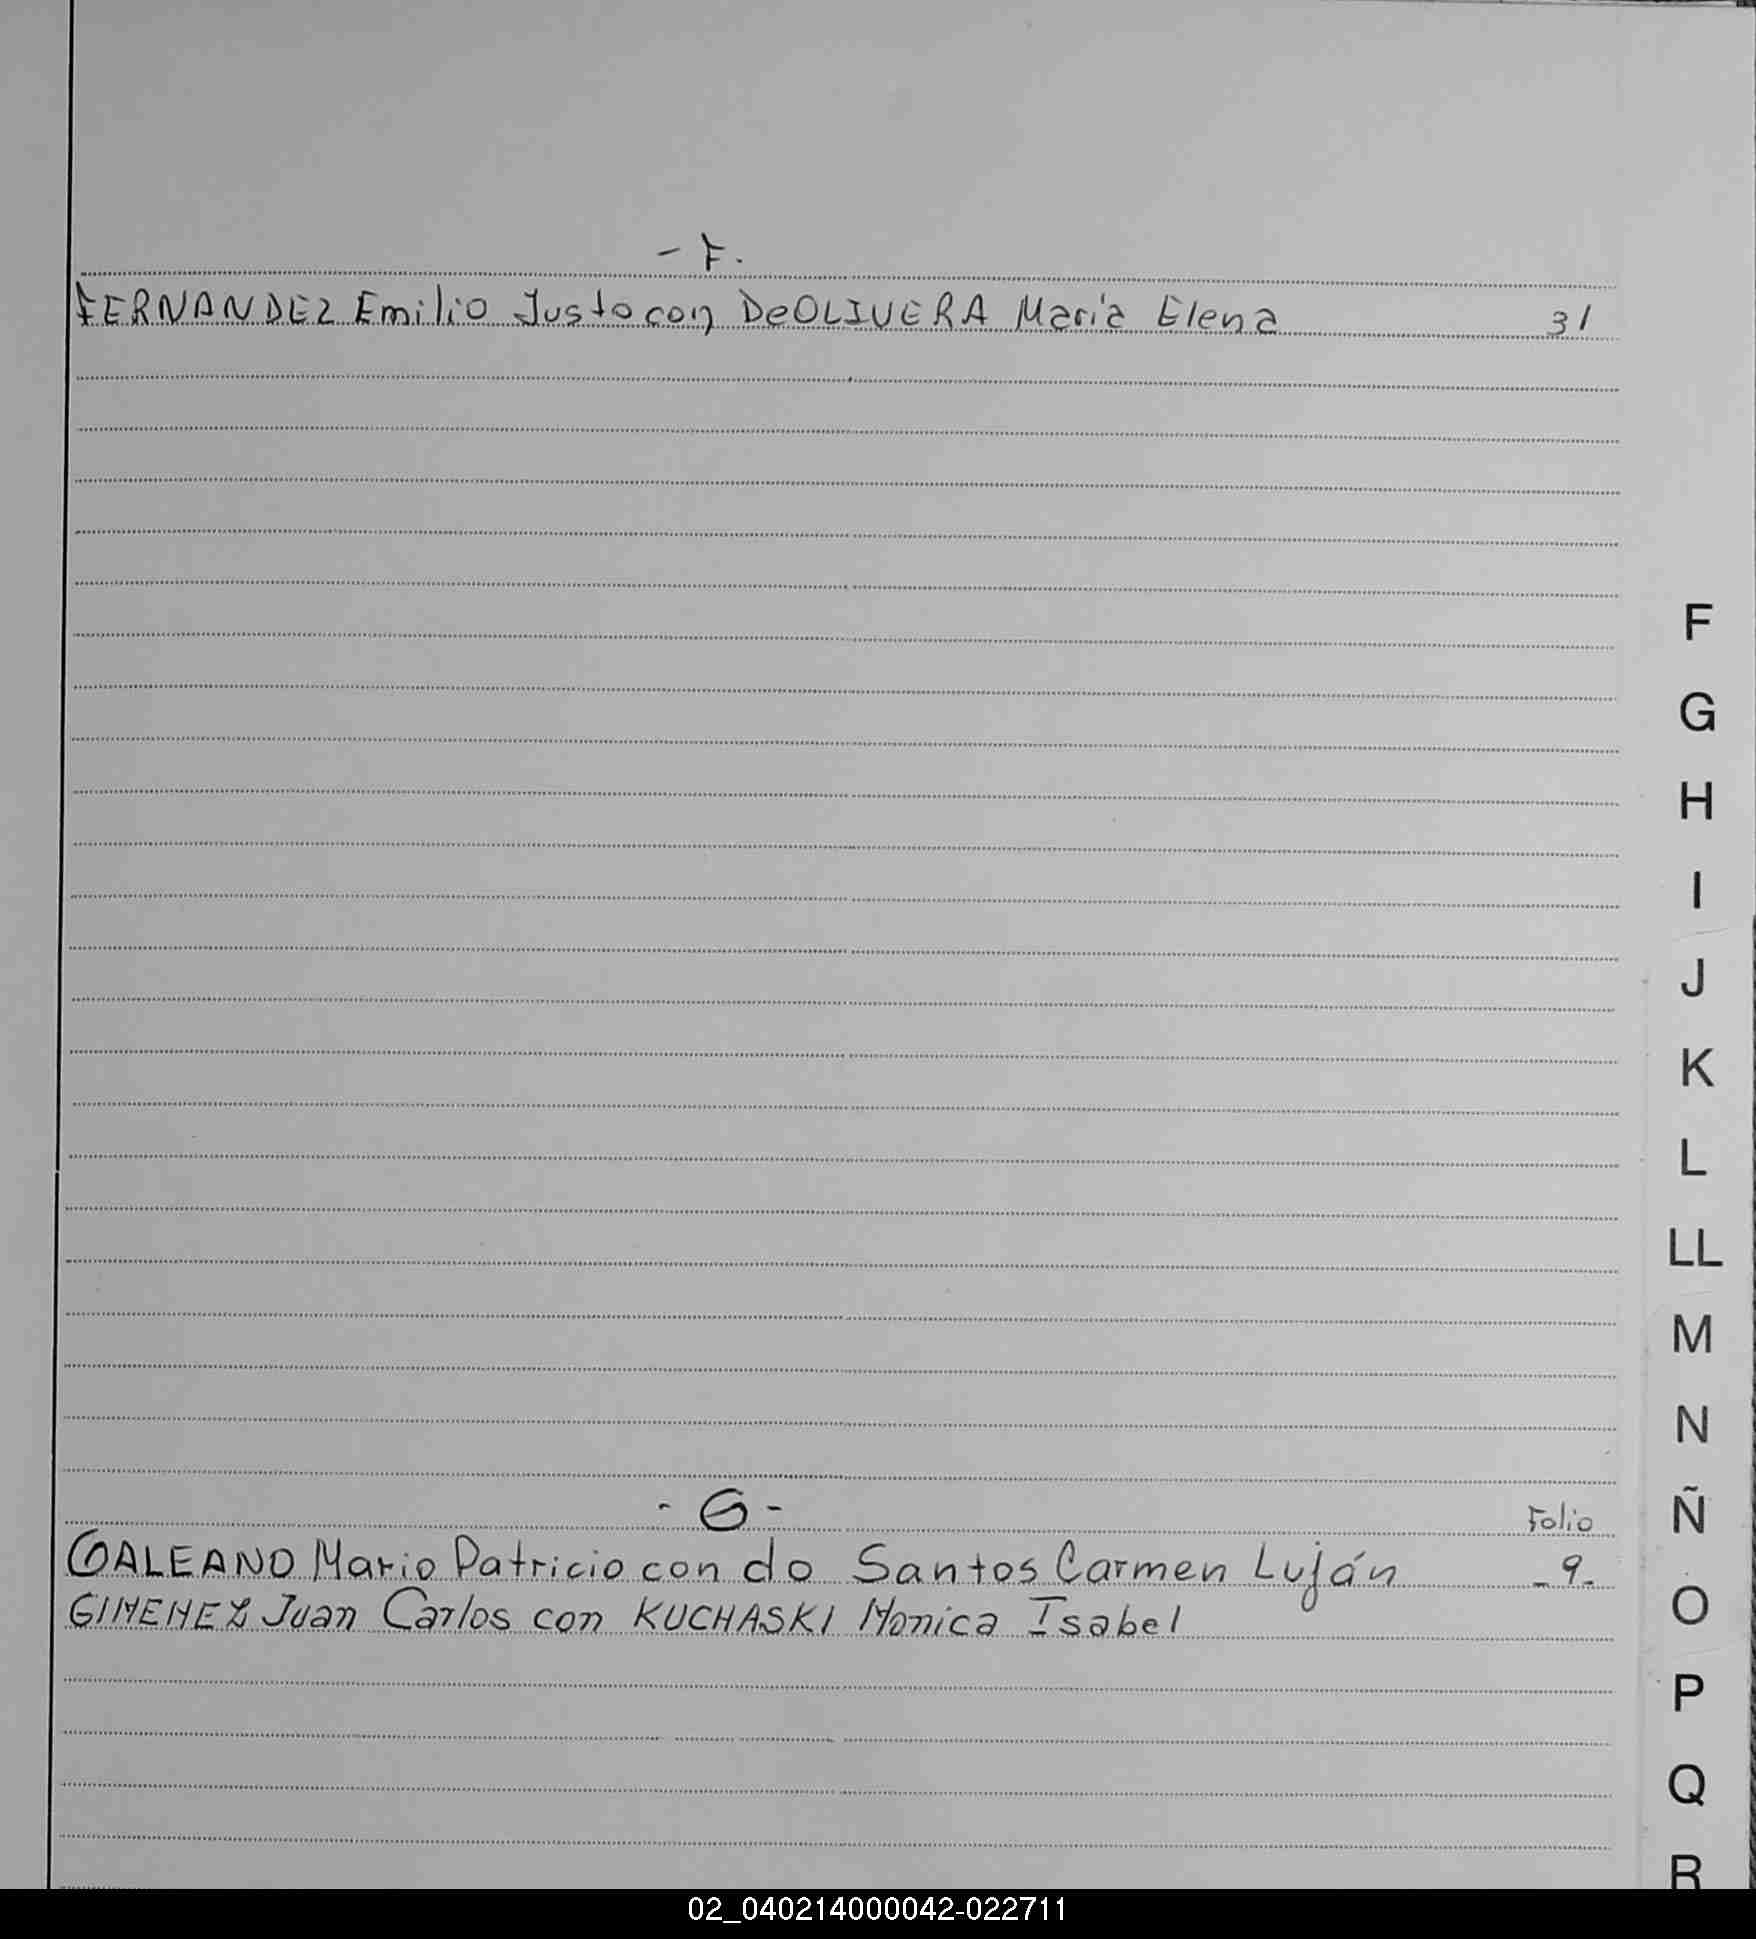 - F.
FERNANDEZ Emilio Justo con DeOLIVERA María Elena 31
F
G
H
I
J
K
L
LL
M
N
- G - Folio
Ñ
GALEANO Mario Patricio con do Santos Carmen Luján - 9 -
O
GIMENEZ Juan Carlos con KUCHASKI Monica Isabel
P
Q
R
02_040214000042-022711